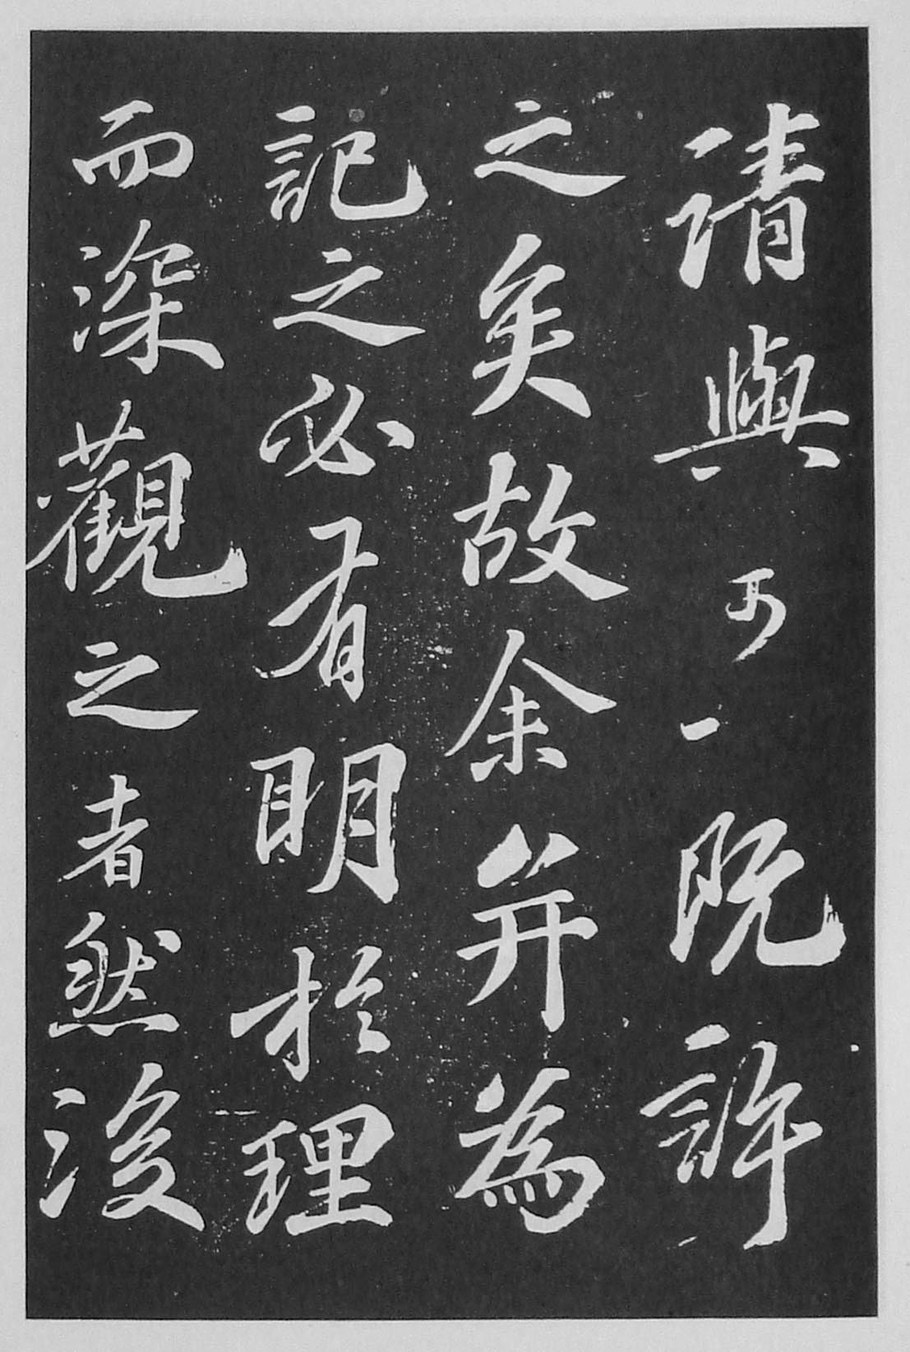 請與可〻既許
之矣故余并為
記之必有明於理
而深觀之者然後